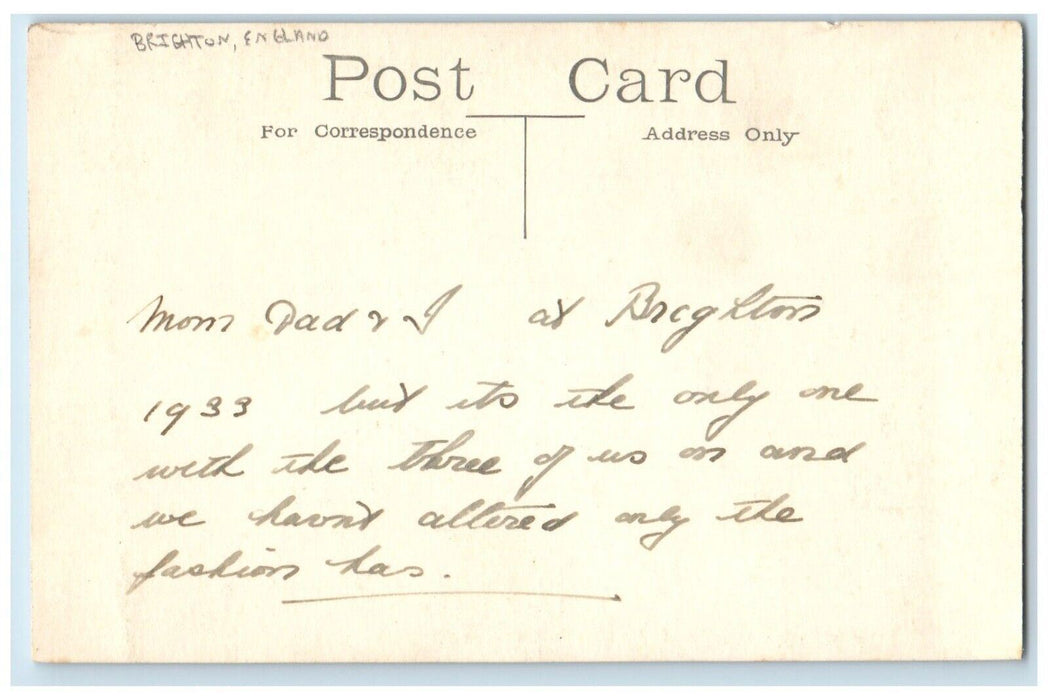 BRIGHTON, ENGLAND
Post Card
For Correspondence
Address Only
Mom Dad & I at Brighton
1933 but its the only one
with the three of us on and
we havn't altered only the
fashion has.